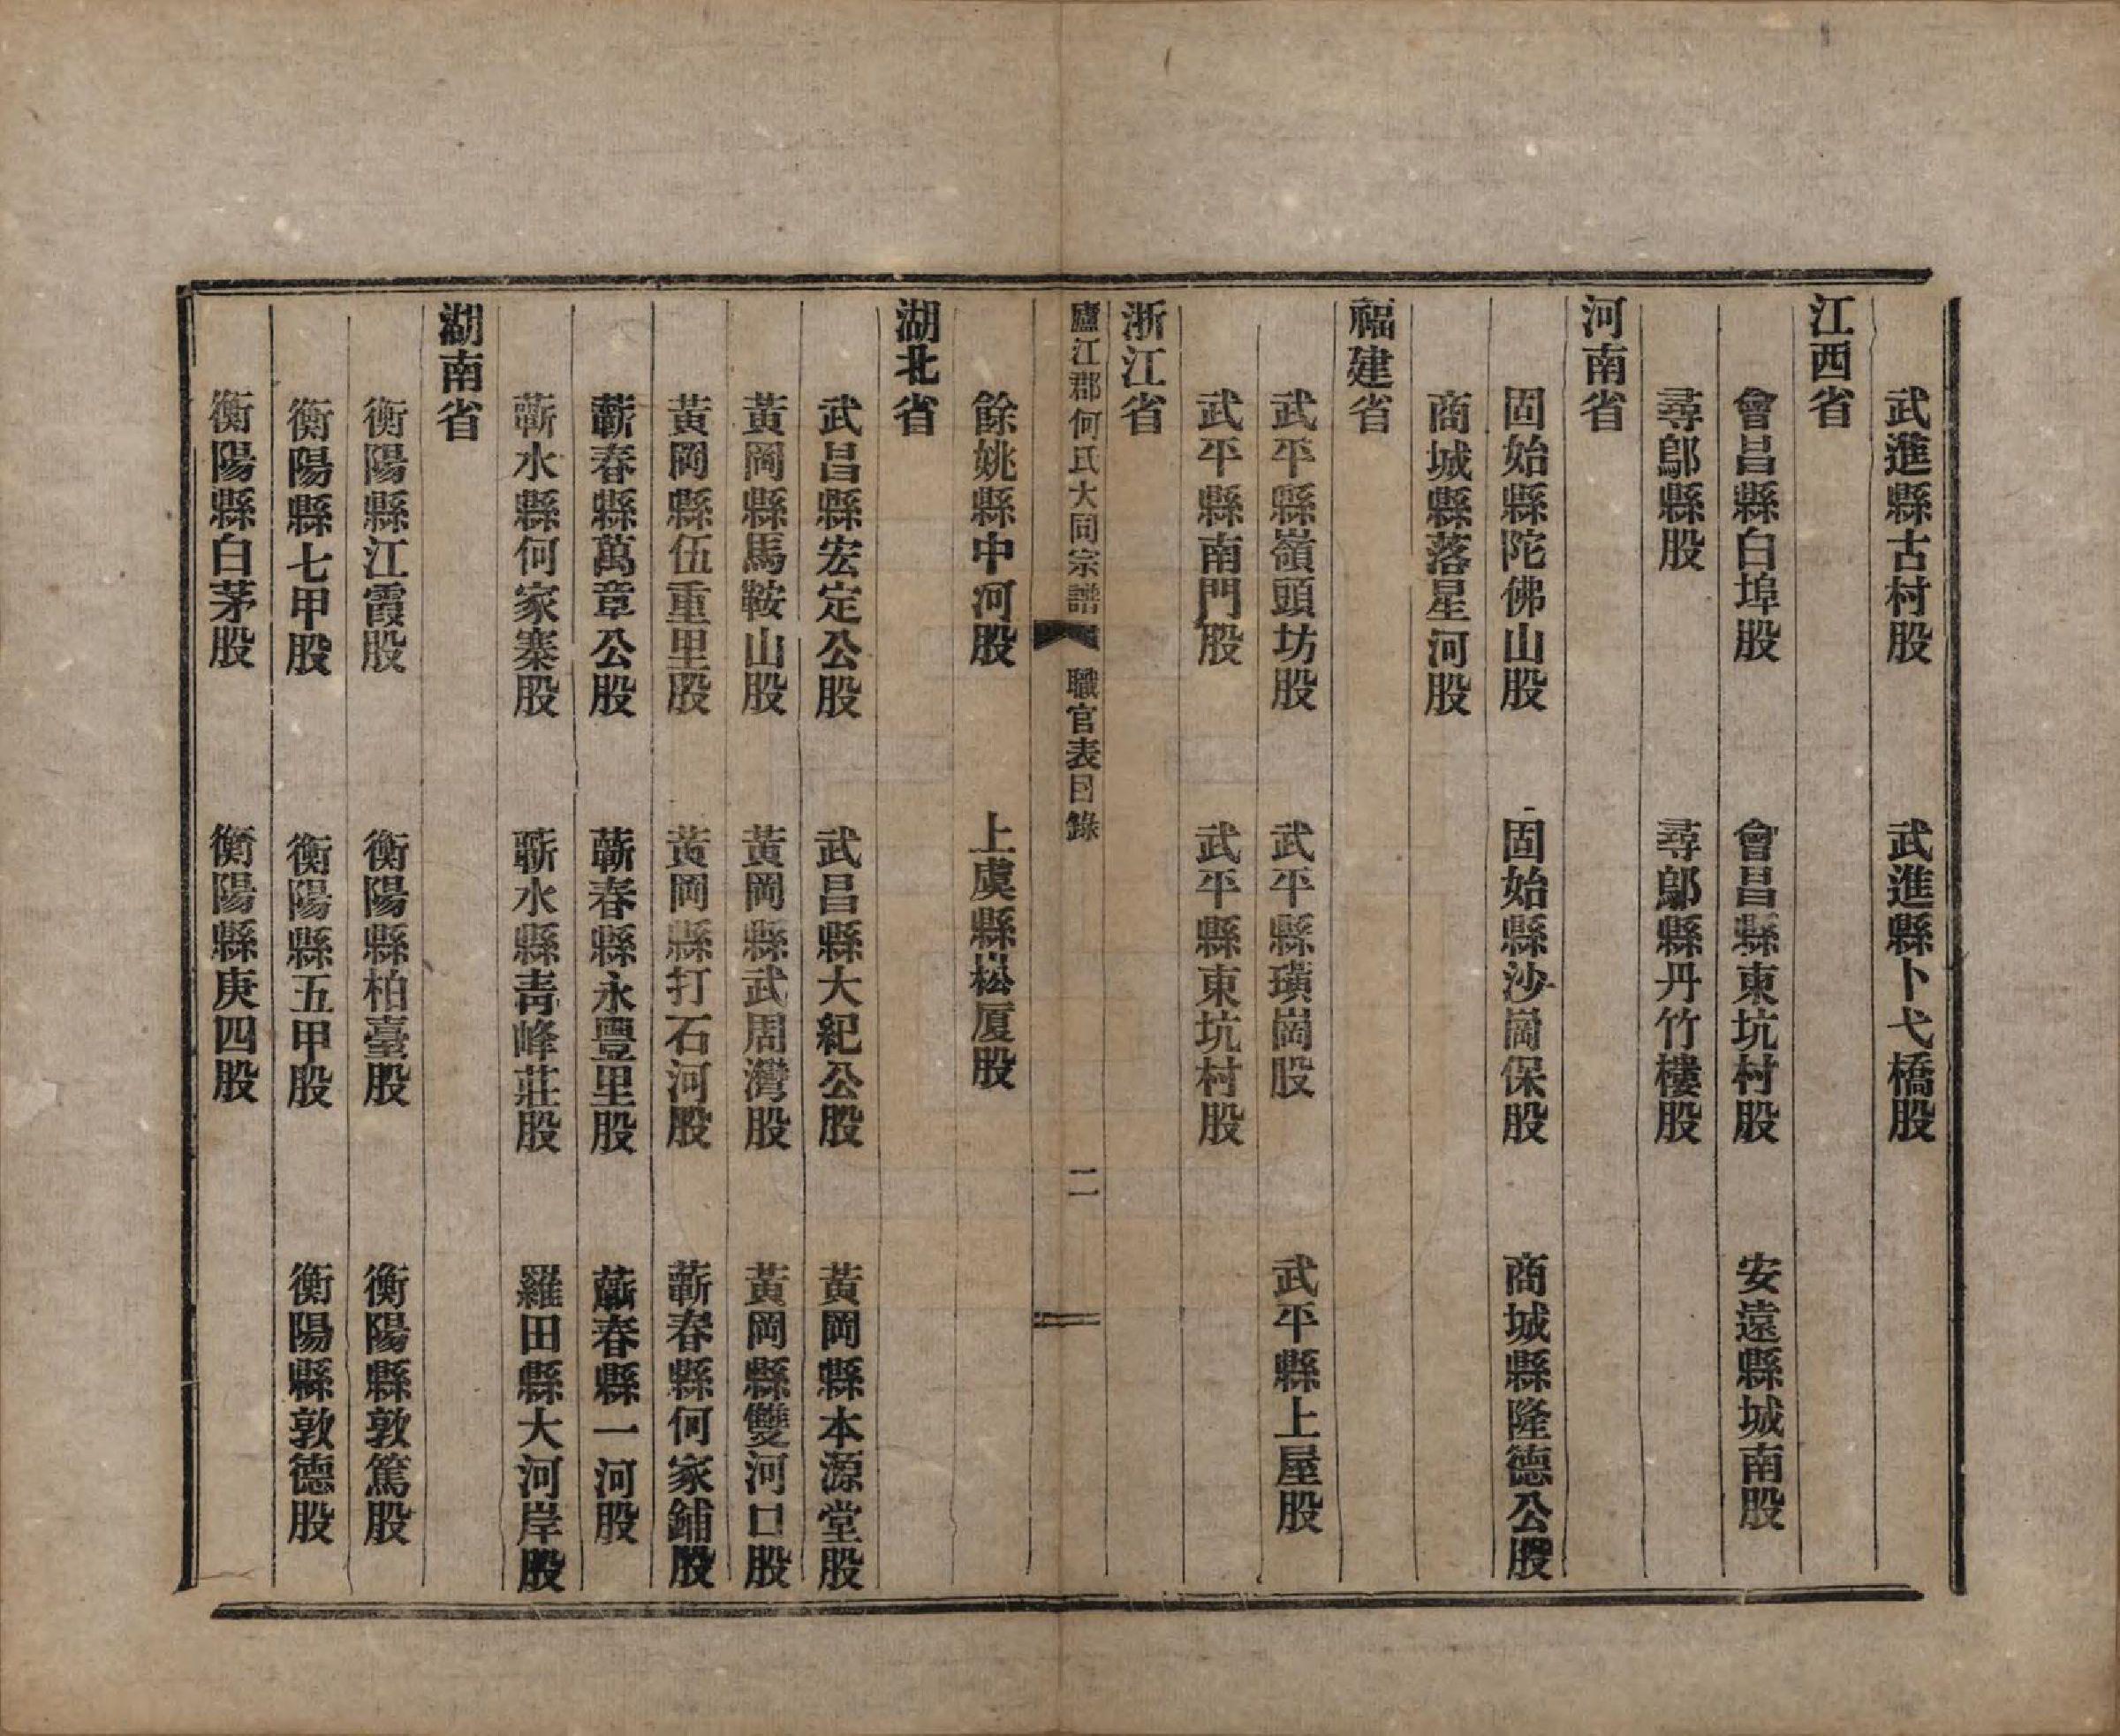 武進縣古村股　武進縣卜弋橋股
江西省
會昌縣白埠股　會昌縣東坑村股　安遠縣城南股
尋鄔縣股　尋鄔縣丹竹樓股
河南省
固始縣陀佛山股　固始縣沙崗保股　商城縣隆德公股
商城縣落星河股
福建省
武平縣嶺頭坊股　武平縣璜崗股　武平縣上屋股
武平縣南門股　武平縣東坑村股
浙江省
廬江郡何氏大同宗譜　職官表目錄　二
餘姚縣中河股　上虞縣崧厦股
湖北省
武昌縣宏定公股　武昌縣大紀公股　黃岡縣本源堂股
黃岡縣馬鞍山股　黃岡縣武周灣股　黃岡縣雙河口股
黃岡縣伍重里股　黃岡縣打石河股　蘄春縣何家鋪股
蘄春縣萬章公股　蘄春縣永豐里股　蘄春縣一河股
蘄水縣何家寨股　蘄水縣青峰莊股　羅田縣大河岸股
湖南省
衡陽縣江霞股　衡陽縣柏臺股　衡陽縣敦篤股
衡陽縣七甲股　衡陽縣五甲股　衡陽縣敦德股
衡陽縣白茅股　衡陽縣庚四股